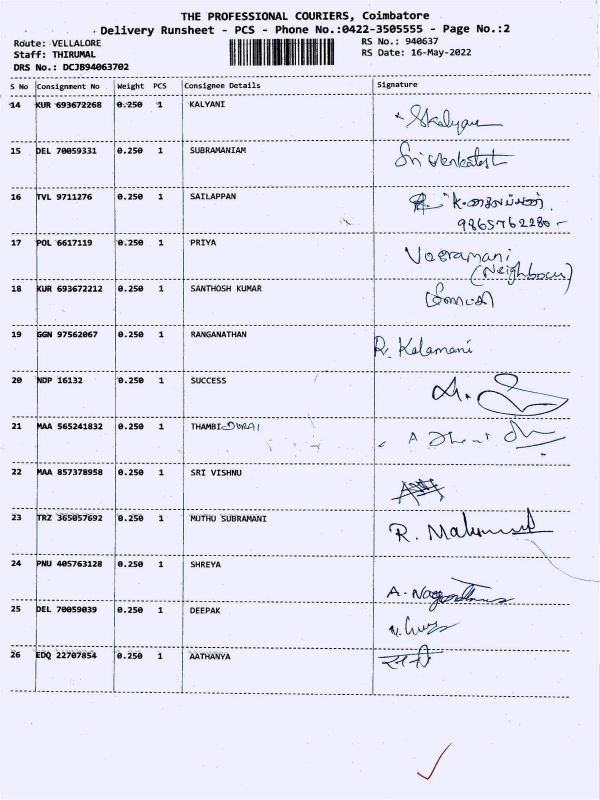 THE PROFESSIONAL COURIERS, Coimbatore
Delivery Runsheet - PCS - Phone No.:0422-3505555 - Page No.:2
Route: VELLALORE
RS No.: 940637
Staff: THIRUMAL
RS Date: 16-May-2022
DRS No.: DCJB94063702
S No Consignment No Weight PCS Consignee Details Signature
14 KUR 693672268 0.250 1 KALYANI
Skalyani
15 DEL 70059331 0.250 1 SUBRAMANIAM
Sri Venkatesh
16 TVL 9711276 0.250 1 SAILAPPAN
9865762280
17 POL 6617119 0.250 1 PRIYA
Veeramani
(Neighbour)
18 KUR 693672212 0.250 1 SANTHOSH KUMAR
19 GGN 97562067 0.250 1 RANGANATHAN
R. Kalamani
20 NDP 16132 0.250 1 SUCCESS
21 MAA 565241832 0.250 1 THAMBI DURAI
22 MAA 857378958 0.250 1 SRI VISHNU
23 TRZ 365057692 0.250 1 MUTHU SUBRAMANI
24 PNU 405763128 0.250 1 SHREYA
25 DEL 70059039 0.250 1 DEEPAK
26 EDQ 22707854 0.250 1 AATHANYA